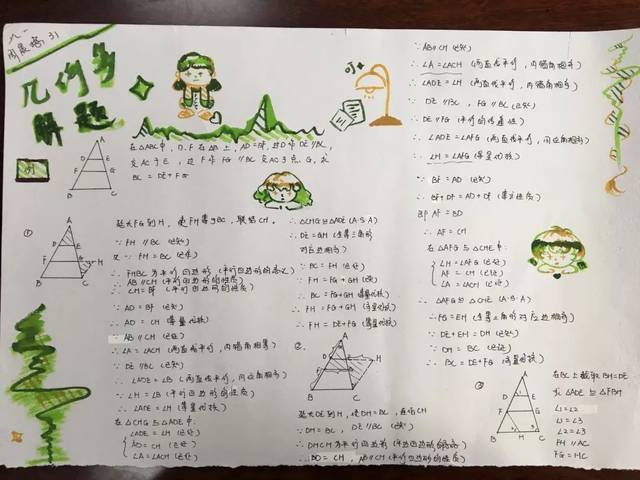 几何多
解题
例
A
D
E
F
G
B
C
在△ABC中，D.F在AB上，AD=BF，过D作DE∥BC，
交AC于E，过F作FG∥BC交AC于点G，求
BC=DE+FG
①
A
D
E
F
G
H
B
C
延长FG到H，使FH等于BC，联结CH。
∵FH∥BC（已知）
又∵FH=BC（已知）
∴FHBC为平行四边形（平行四边形的
AB∥CH（平行四边形的性质）
∴CH=BF（平行四边形的性质）
∵AD=BF（已知）
∴AD=CH（等量代换）
∵AB∥CH（已证）
∴∠A=∠ACH（两直线平行，内错角相等）
∵DE∥BC（已知）
∴∠ADE=∠B（两直线平行，同位角相等）
∵∠H=∠B（平行四边形的性质）
∴∠ADE=∠H（等量代换）
在△CHG与△ADE中
∠ADE=∠H（已证）
AD=CH（已证）
∠A=∠ACH（已证）
∴△CHG≌△ADE（A.S.A）
∴DE=GH（全等三角形
对应边相等）
∵BC=FH（已证）
FH=FG+GH（已知）
∴BC=FG+GH（等量代换）
∴FH=FG+GH（等量代换）
∴FH=DE+FG（等量代换）
②
A
D
E
H
F
G
B
C
延长DE到H，使DH=BC，连结CH
∵DH=BC，DE∥BC（已知）
∴DHCB为平行四边形（平行四边形的
∴BD=CH，AB∥CH（平行四边形的性质）
∵AB∥CH（已知）
∴∠A=∠ACH（两直线平行，内错角相等）
∴∠ADE=∠H（两直线平行，内错角相等）
∵DE∥BC，FG∥BC（已知）
∴DE∥FG（平行的传递性）
∴∠ADE=∠AFG（两直线平行，同位角相等）
∴∠H=∠AFG（等量代换）
∵BF=AD（已知）
∴BF+DF=AD+DF（等式性质）
即AF=BD
∴AF=CH
在△AFG与△CHE中
∠H=∠AFG（已证）
AF=CH（已证）
∠A=∠ACH（已证）
∴△AFG≌△CHE（A.S.A）
∴FG=EH（全等三角形对应边相等）
∵DE+EH=DH（已知）
∵DH=BC（已证）
∴BC=DE+FG（等量代换）
③
A
D
E
F
G
B
H
C
在BC上截取BH=DE
求△ADE≌△FBH
∠1=∠2
∠1=∠3
∠2=∠3
FH∥AC
FG=HC